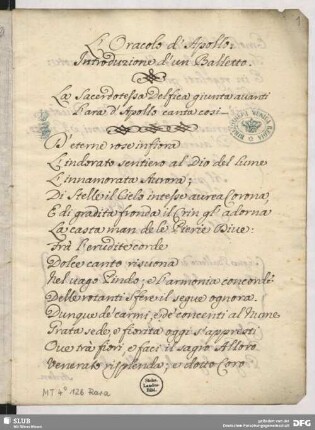 1
L'Oracolo d'Apollo.
Introduzione d'un Balletto.
La Sacerdotessa Delfica giunta avanti
l'ara d'Apollo canta così
D'eterne rose infiora
L'indorato sentiero al Dio del lume
L'innamorata Aurora;
Di Stelle il Cielo intesse aurea Corona,
E di gradita fronda il Crin gl'adorna
La casta man de le Pierie Dive:
Frà l'erudite corde
Dolce canto risuona
Nel vago Pindo; e l'armonia concorde
Delle rotanti Sfere il segue ognora.
Dunque de' carmi, e de' concenti al Nume
Grata sede, e fiorita oggi s'appresti
Ove trà fiori e faci il sagro Alloro
Venerato risplenda; e dotto Coro
MT 4° 126 Rara
Sächs.
Landes-
Bibl.
SLUB
Wir führen Wissen.
gefördert von der
Deutschen Forschungsgemeinschaft
DFG